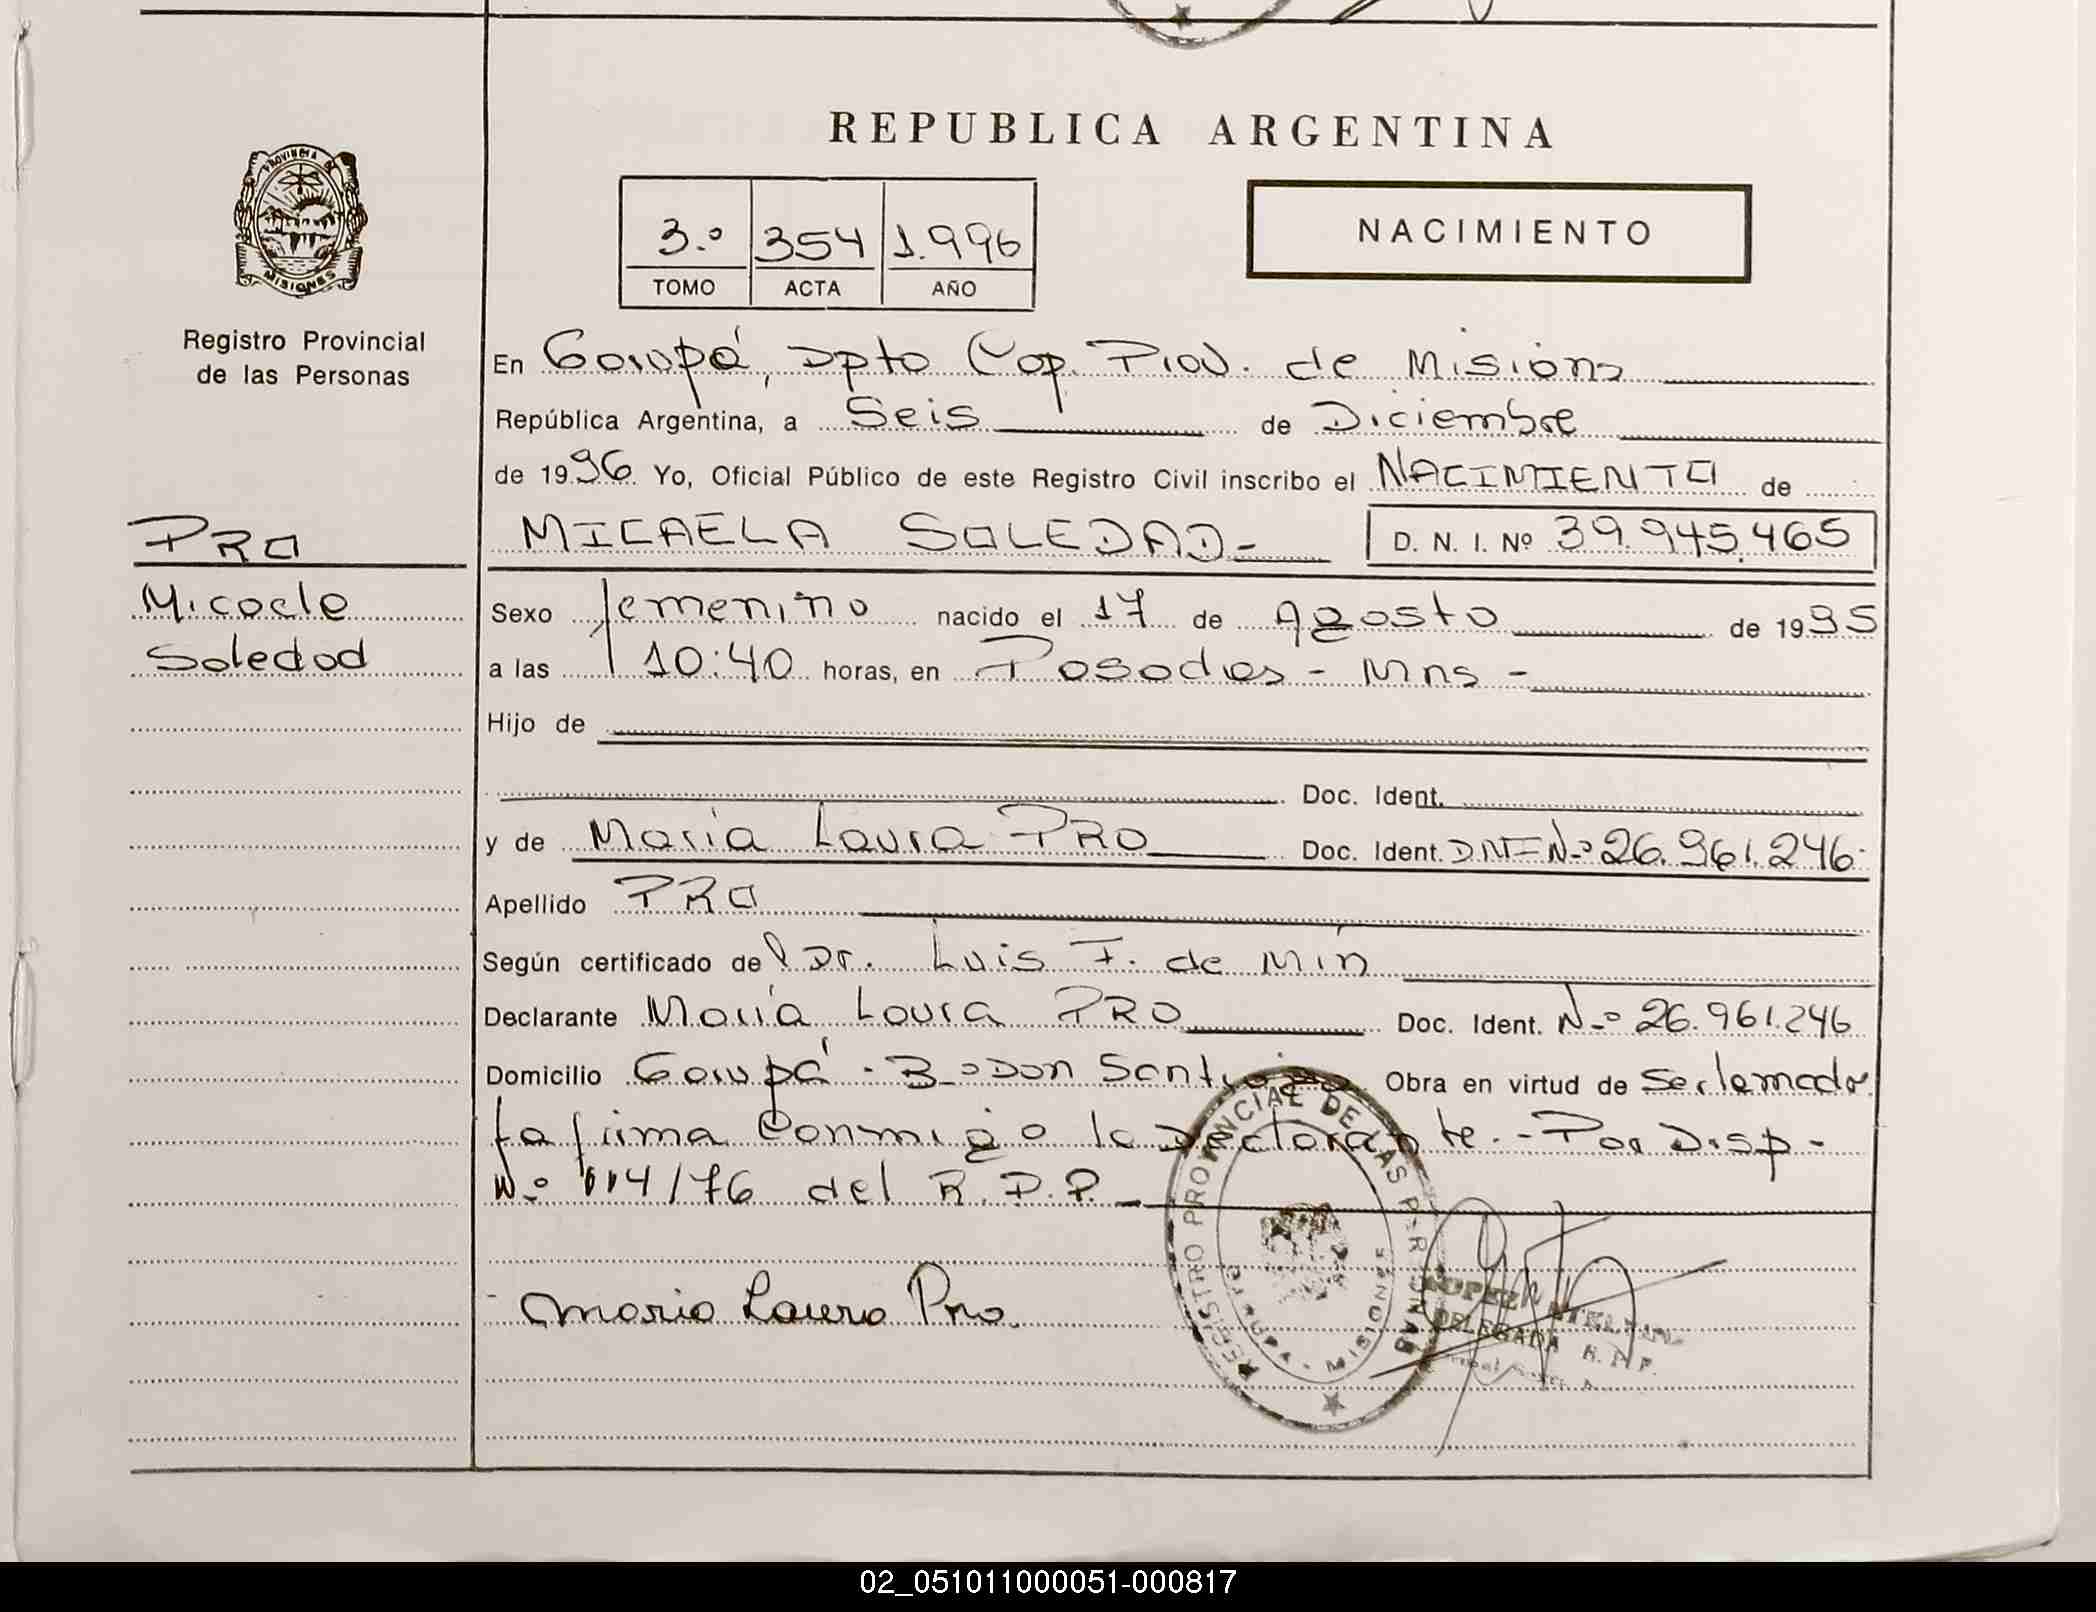 REPUBLICA ARGENTINA
3.º 354 1.996
TOMO ACTA AÑO
NACIMIENTO
PROVINCIA DE
MISIONES
Registro Provincial
de las Personas
PRO
Micaele
Soledad
En Garupá, Dpto Cap. Prov. de Misions
República Argentina, a Seis de Diciembre
de 1996 Yo, Oficial Público de este Registro Civil inscribo el NACIMIENTO de
MICAELA SOLEDAD- D. N. I. Nº 39.945.465
Sexo femenino nacido el 17 de Agosto de 1995
a las 10:40 horas, en Posadas - Mns -
Hijo de
Doc. Ident.
y de María Laura PRO Doc. Ident. DNI Nº 26.961.246
Apellido PRO
Según certificado del Dr. Luis F. de Min
Declarante María Laura PRO Doc. Ident. Nº 26.961.246
Domicilio Garupá - Bº Don Santiago Obra en virtud de
firma conmigo la Declarante. - Por Disp -
Nº 114/76 del R.P.P.
Maria Laura Pro.
REGISTRO PROVINCIAL DE LAS PERSONAS
MISIONES
LOPEZ
DELEGADA R. P. P.
02_051011000051-000817